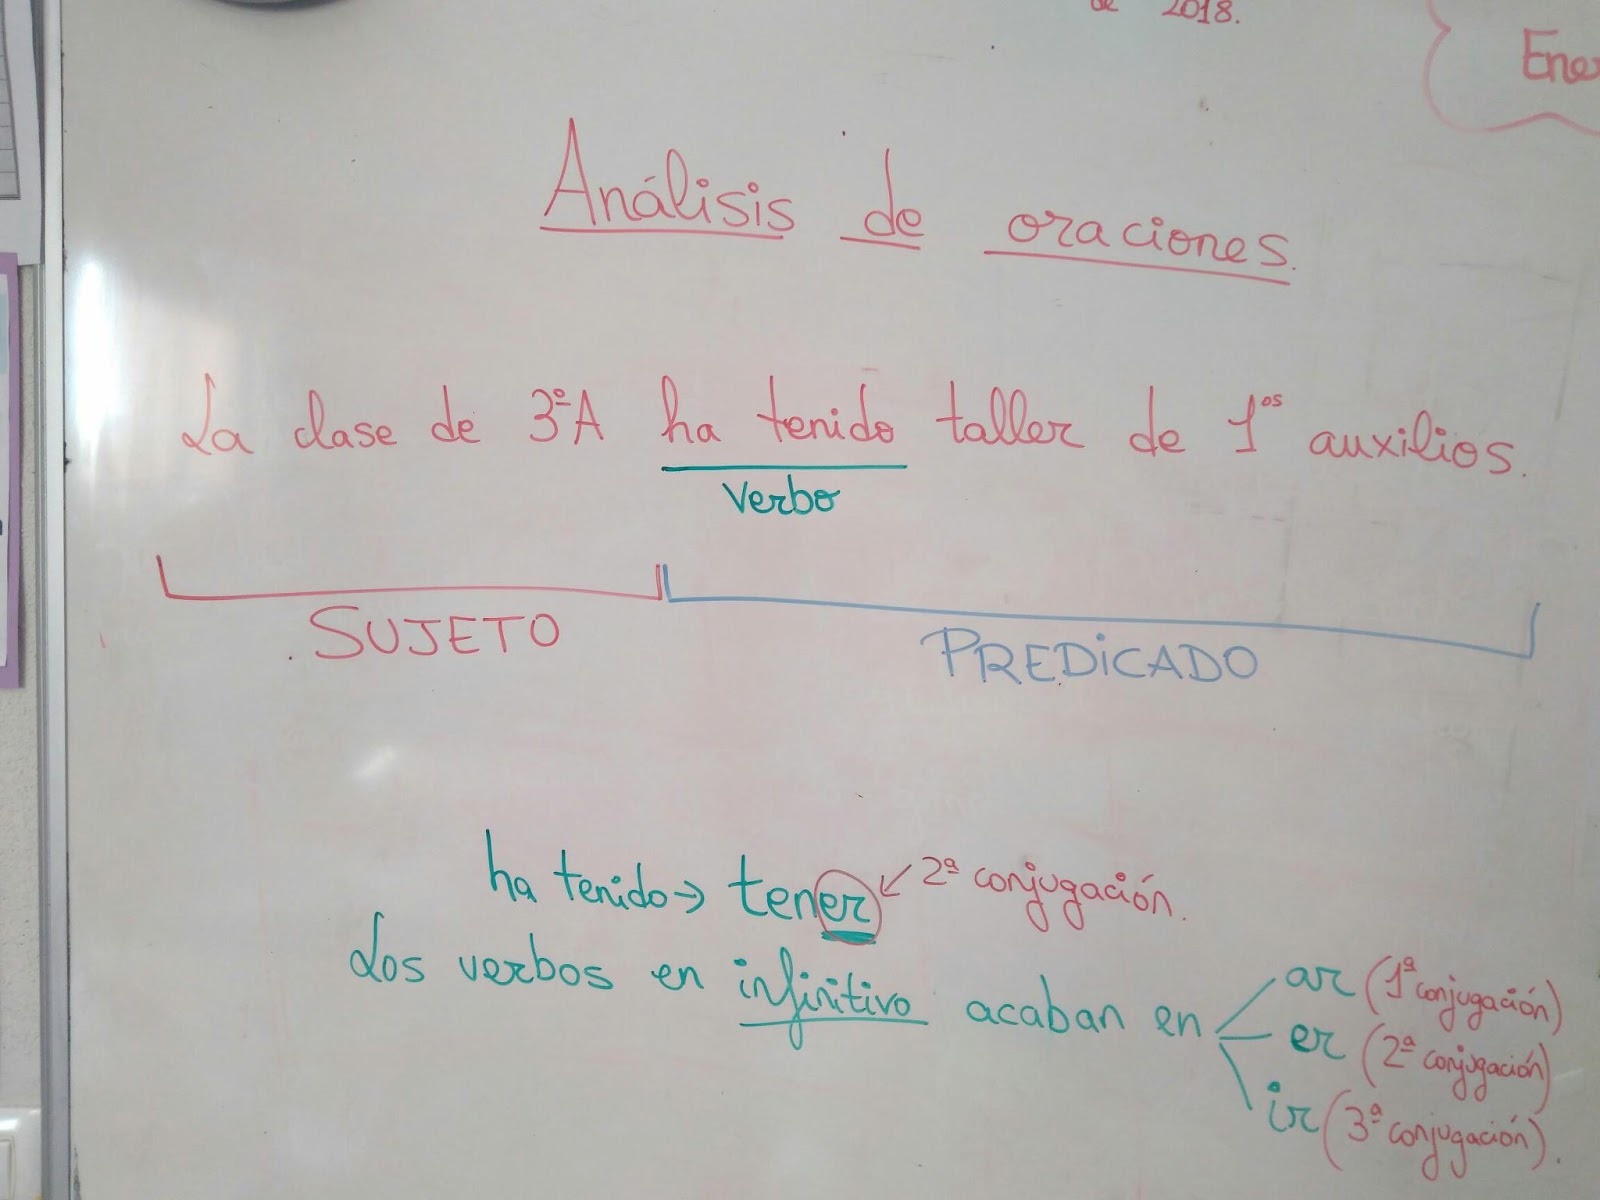 de 2018.
Análisis de oraciones.
La clase de 3ºA ha tenido taller de 1ºs auxilios.
verbo
SUJETO
PREDICADO
ha tenido → tener ← 2ª conjugación.
Los verbos en infinitivo acaban en
ar (1ª conjugación)
er (2ª conjugación)
ir (3ª conjugación).